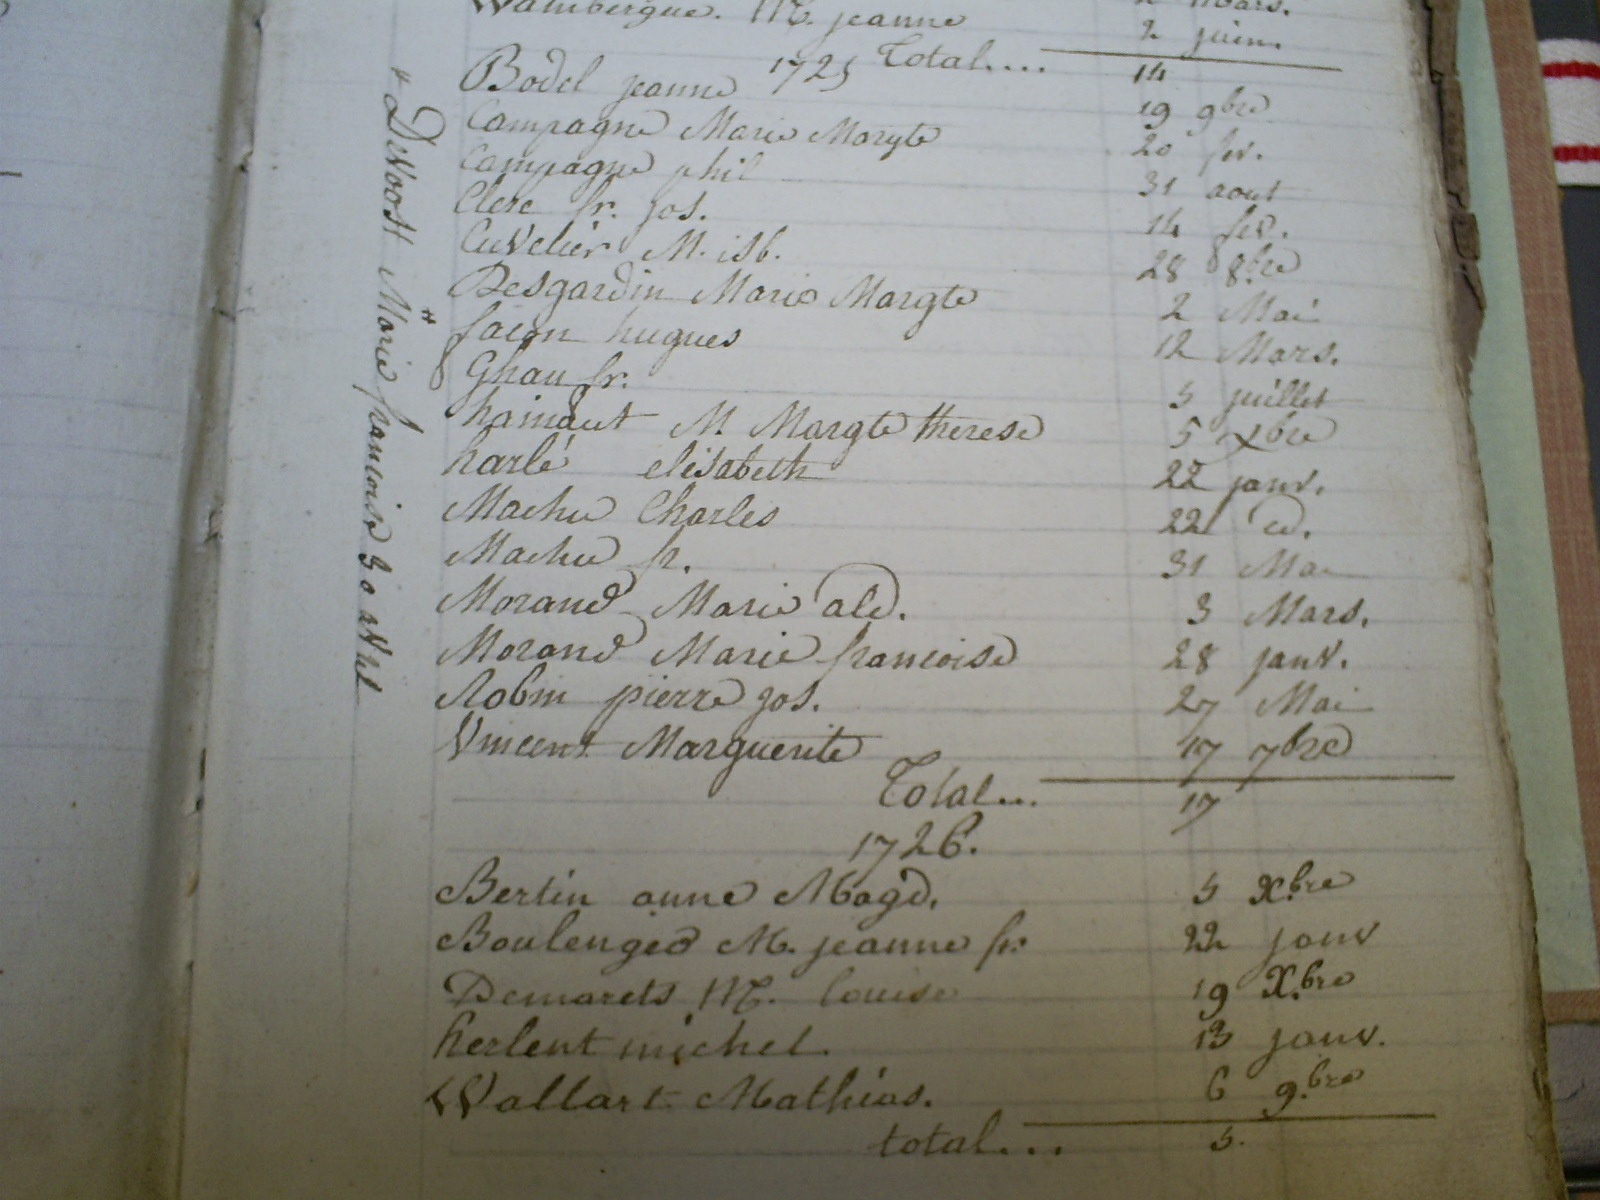 Wambergue. M. jeanne 2 mars.
2 juin.
1725 Total.... 14
Bodel jeanne 19 9bre
Campagne Marie Margte 20 fev.
Campagne phil 31 aout
Clerc fr. jos. 14 fev.
Cuvelier M. isb. 28 8bre
Desgardin Marie Margte 2 Mai
# facon hugues 12 Mars.
Ghau fr. 5 juillet
hainaut M Margte therese 5 xbre
harlé elisabeth 22 janv.
Machu Charles 22 d.
Machu fr. 31 Mai
Morand Marie ald. 3 Mars.
Morand Marie francoise 28 janv.
Robin pierre jos. 27 Mai
Vincent Marguerite 17 7bre
Total... 17
1726.
Bertin anne Magd. 5 Xbre
Boulenger M. jeanne fr. 22 janv
Demarets M. louise 19 X.bre
herlent michel. 13 janv.
Wallart Mathias. 6 9.bre
total... 5.
# DeVoost Marie francoise 30 avril